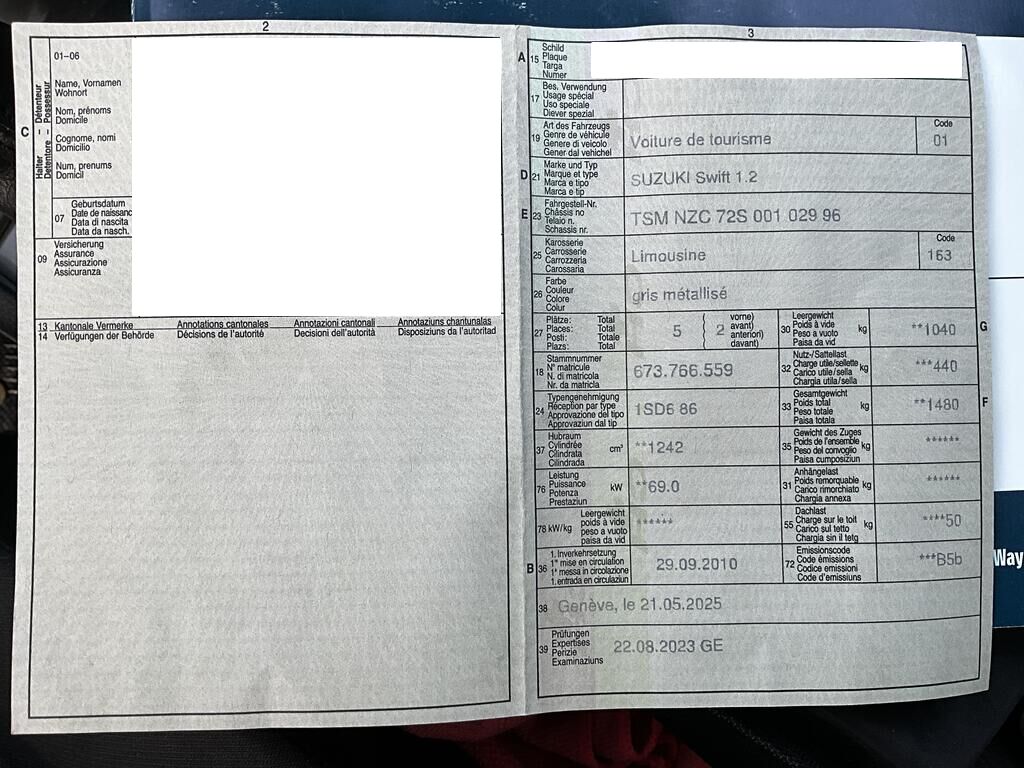 2
01–06
Name, Vornamen
Wohnort
Nom, prénoms
Domicile
Cognome, nomi
Domicilio
Num, prenums
Domicil
C
Halter – Détenteur
Detentore – Possessur
07
Geburtsdatum
Date de naissanc
Data di nascita
Data da nasch.
09
Versicherung
Assurance
Assicurazione
Assicuranza
13 Kantonale Vermerke Annotations cantonales Annotazioni cantonali Annotaziuns chantunalas
14 Verfügungen der Behörde Décisions de l'autorité Decisioni dell'autorità Disposiziuns da l'autoritad
3
A 15
Schild
Plaque
Targa
Numer
17
Bes. Verwendung
Usage spécial
Uso speciale
Diever spezial
19
Art des Fahrzeugs
Genre de véhicule
Genere di veicolo
Gener dal vehichel
Voiture de tourisme
Code
01
D 21
Marke und Typ
Marque et type
Marca e tipo
Marca e tip
SUZUKI Swift 1.2
E 23
Fahrgestell-Nr.
Châssis no
Telaio n.
Schassis nr.
TSM NZC 72S 001 029 96
25
Karosserie
Carrosserie
Carrozzeria
Carossaria
Limousine
Code
163
26
Farbe
Couleur
Colore
Colur
gris métallisé
27
Plätze: Total
Places: Total
Posti: Totale
Plazs: Total
5
2
vorne)
avant)
anteriori)
davant)
30
Leergewicht
Poids à vide
Peso a vuoto
Paisa da vid
kg
**1040
G
18
Stammnummer
N° matricule
N. di matricola
Nr. da matricla
673.766.559
32
Nutz-/Sattellast
Charge utile/sellette
Carico utile/sella
Chargia utila/sella
kg
***440
24
Typengenehmigung
Réception par type
Approvazione del tipo
Approvaziun dal tip
1SD6 86
33
Gesamtgewicht
Poids total
Peso totale
Paisa totala
kg
**1480
F
37
Hubraum
Cylindrée
Cilindrata
Cilindrada
cm³
**1242
35
Gewicht des Zuges
Poids de l'ensemble
Peso del convoglio
Paisa cumposiziun
kg
******
76
Leistung
Puissance
Potenza
Prestaziun
kW
**69.0
31
Anhängelast
Poids remorquable
Carico rimorchiato
Chargia annexa
kg
******
78 kW/kg
Leergewicht
poids à vide
peso a vuoto
paisa da vid
******
55
Dachlast
Charge sur le toit
Carico sul tetto
Chargia sin il tetg
kg
****50
B 36
1. Inverkehrsetzung
1re mise en circulation
1a messa in circolazione
1. entrada en circulaziun
29.09.2010
72
Emissionscode
Code émissions
Codice emissioni
Code d'emissiuns
***B5b
38
Genève, le 21.05.2025
39
Prüfungen
Expertises
Perizie
Examinaziuns
22.08.2023 GE
Way